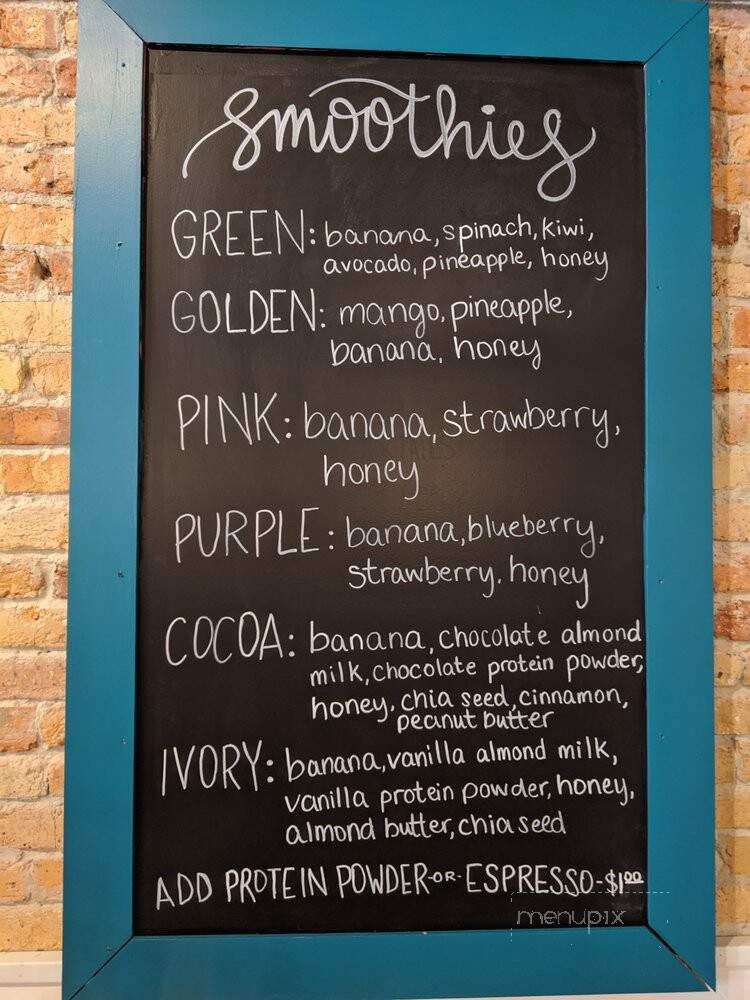 smoothies
GREEN: banana, spinach, kiwi,
avocado, pineapple, honey
GOLDEN: mango, pineapple,
banana, honey
PINK: banana, strawberry,
honey
PURPLE: banana, blueberry,
strawberry, honey
COCOA: banana, chocolate almond
milk, chocolate protein powder,
honey, chia seed, cinnamon,
peanut butter
IVORY: banana, vanilla almond milk,
vanilla protein powder, honey,
almond butter, chia seed
ADD PROTEIN POWDER-OR-ESPRESSO-$1.00
menupix